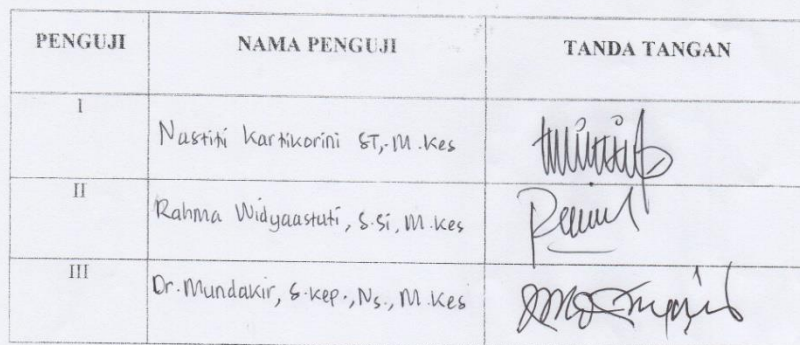 PENGUJI NAMA PENGUJI TANDA TANGAN
I Nastiti Kartikorini ST,. M.Kes
II Rahma Widyaastuti, S.Si, M.Kes
III Dr. Mundakir, S.Kep., Ns., M.Kes